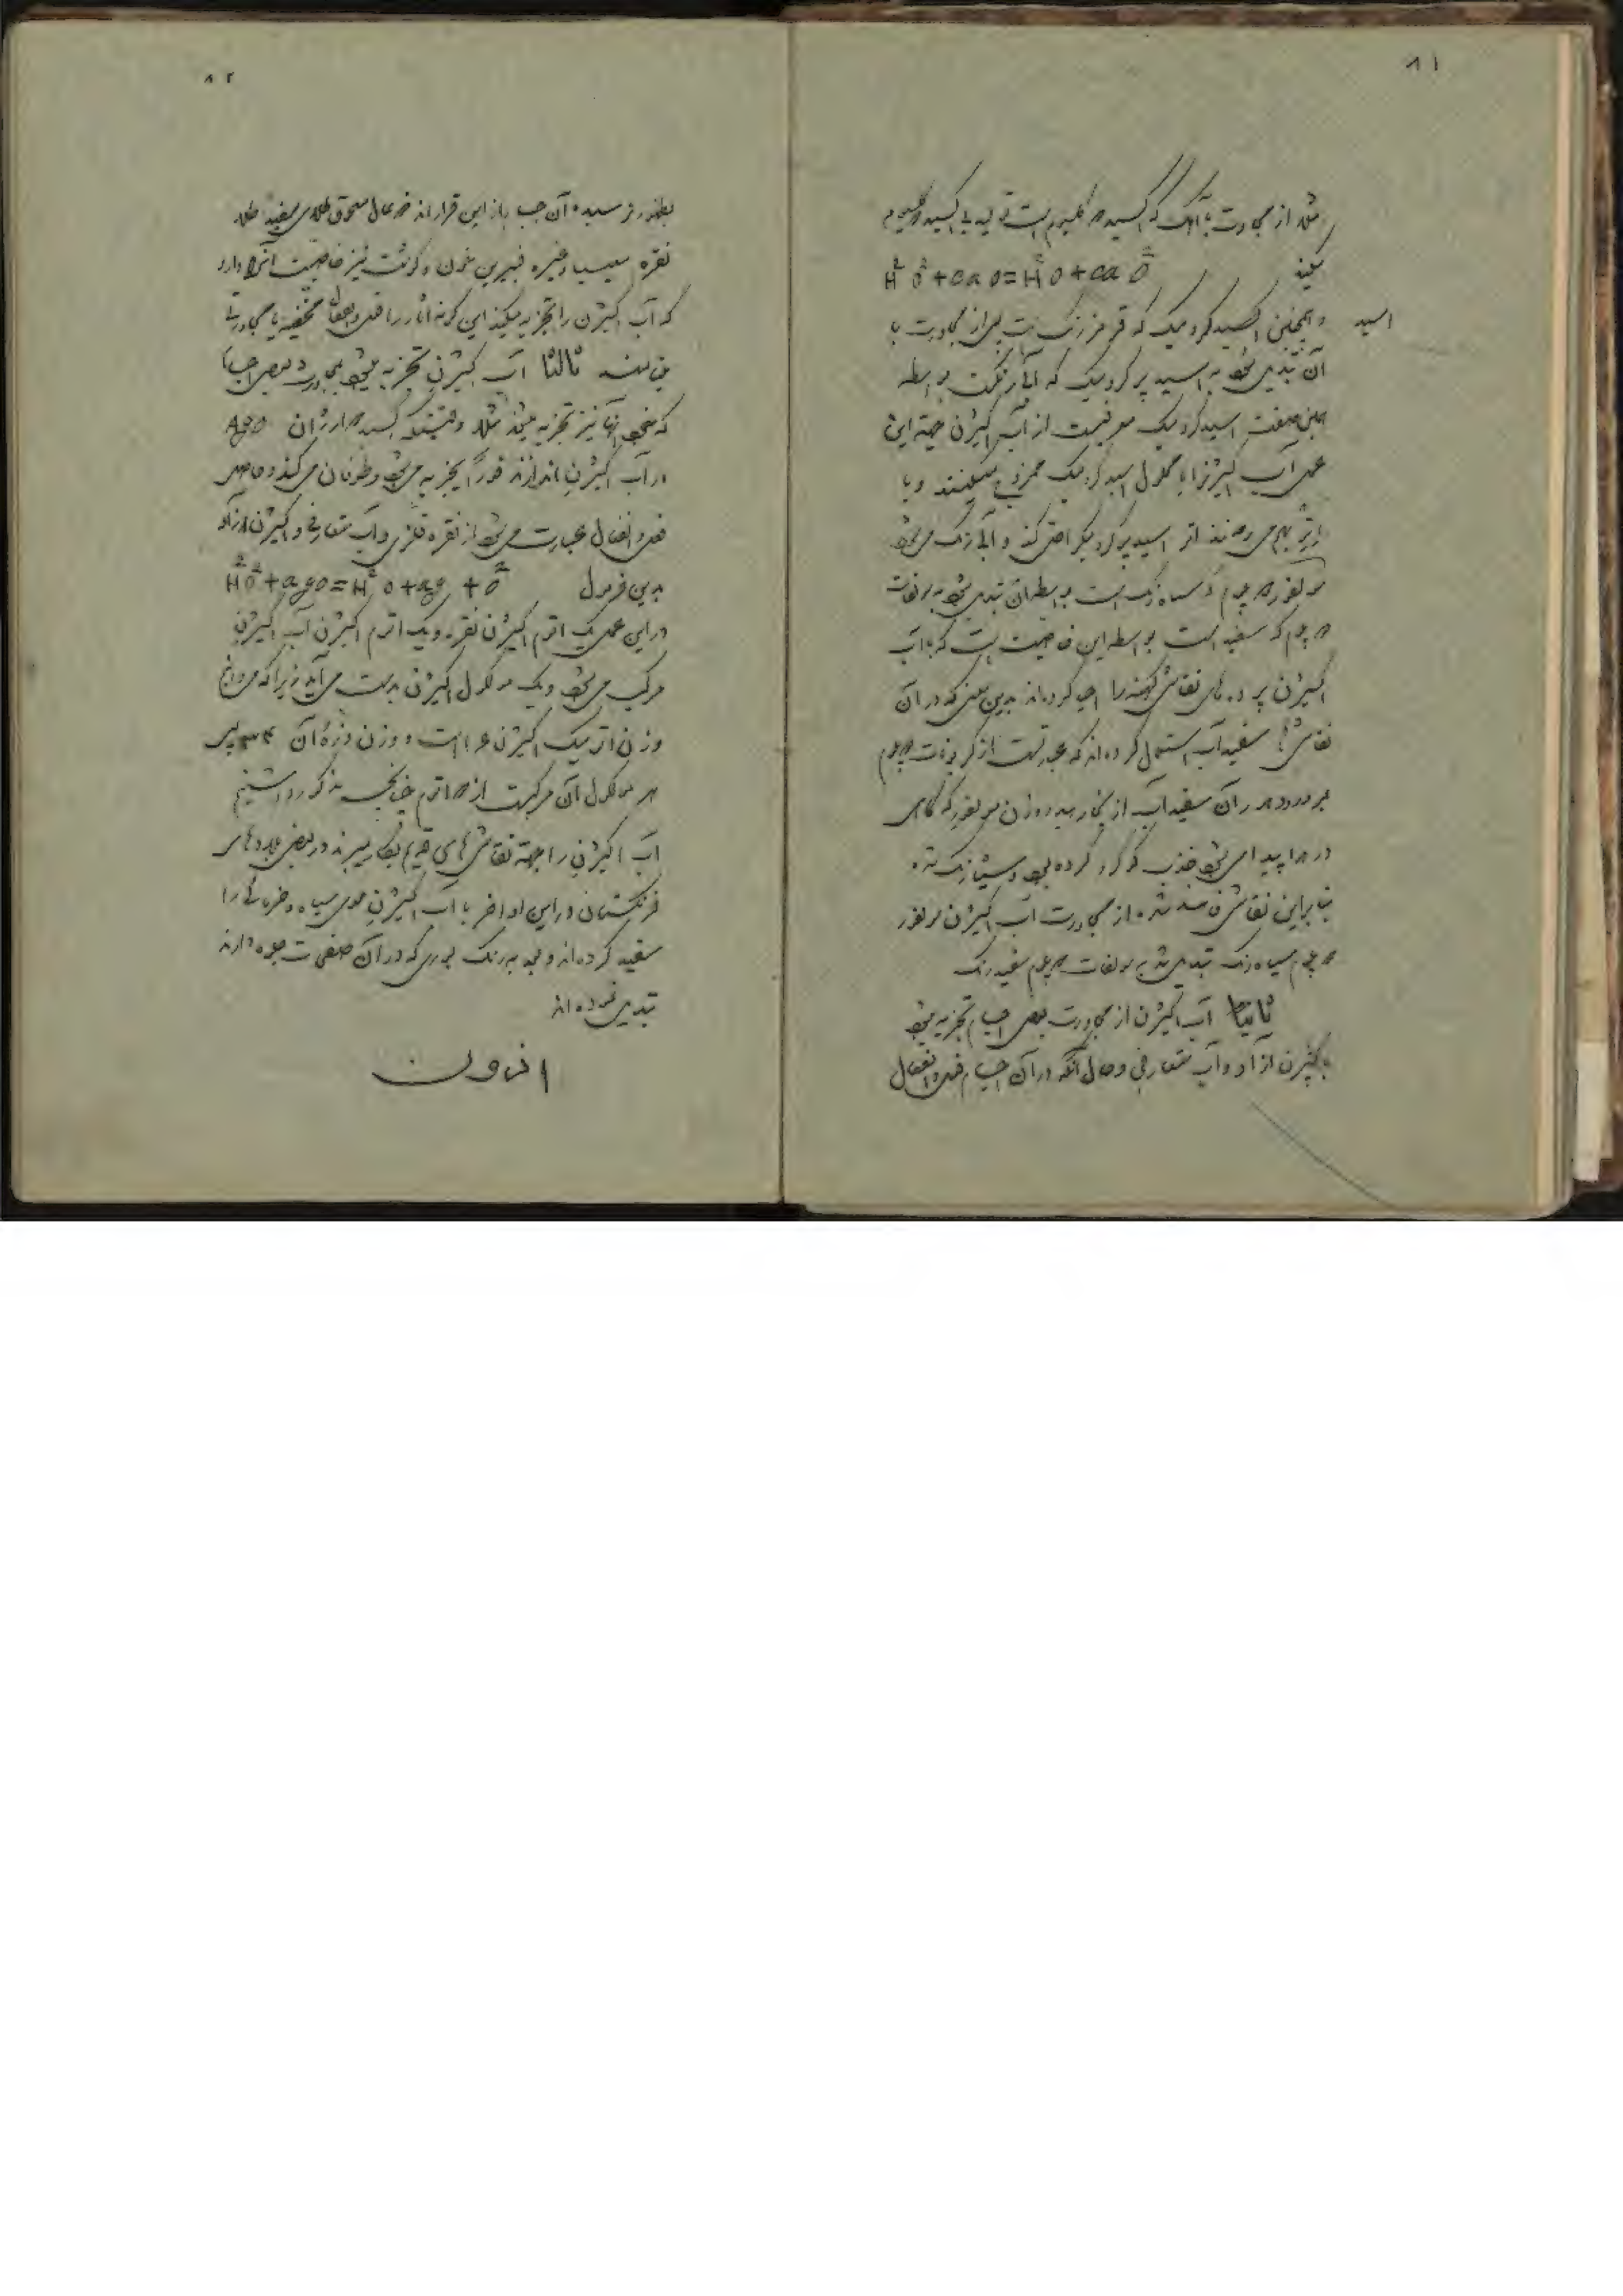 ۸۱
مثلا از مجاورت با آهک که اکسید دو کلسیوم است تولید بی اکسید دو کلسیوم
میکند H² O² + Ca O = H² O + Ca O²
اسید
و همچنین اسید کرومیک که قرمز رنگ است پس از مجاورت با
آن تبدیل میشود به اسید پر کرومیک که آبی رنگست بواسطه
همین صفت اسید کرومیک معرفیست از آب اکسیژن جهة این
عمل آب اکسیژن را با محلول اسید کرومیک ممزوج میکنند و با
اتر بهم میزنند اتر اسید پر کرومیک را حل کند و آبی رنگ میشود
سولفور دو پلم که سیاه رنگ است بواسطه آن تبدیل میشود به سولفات
دو پلم که سفید است بواسطه این خاصیت است که با آب
اکسیژن پرده های نقاشی کهنه را احیا کرده اند بدین معنی که در آن
نقاشی ها سفیداب استعمال کرده اند که عبارتست از کربنات دو پلم
بمرور دهر آن سفیداب از بخار هیدروژن سولفوره که گاهی
در هوا پیدا میشود جذب گوگرد کرده بود و سیاه رنگ شده
بنابراین نقاشی فاسد شده از مجاورت آب اکسیژن سولفور
دو پلم سیاه رنگ تبدیل شد به سولفات دو پلم سفید رنگ
ثانیا آب اکسیژن از مجاورت بعضی اجسام تجزیه میشود
باکسیژن آزاد و آب متعارفی و حال آنکه در آن اجسام فعل و انفعال
۸۲
بظهور نرسیده آن جسم باز این قرارند ذغال مسحوق طلای سفید طلا
نقره سیلیس و غیره فیبرین خون و گوشت نیز خاصیت آنرا دارد
که آب اکسیژن را تجزیه میکند این گونه آثار را فعل و انفعال مخفیه یا مجاورتی
می نامند ثالثا آب اکسیژن تجزیه میشود بمجاورت بعضی اجسام
که خود آنها نیز تجزیه میشوند مثلا وقتیکه اکسید دارژان AgO
در آب اکسیژن اندازند فوراً تجزیه میشود و طوفان می کند و حاصل
فعل و انفعال عبارت میشود از نقره فلزی و آب متعارفی و اکسیژن آزاد
بدین فرمول H²O² + AgO = H²O + Ag + O²
در این عمل یک اتم اکسیژن نقره و یک اتم اکسیژن آب اکسیژن
مرکب میشود و یک مولکول اکسیژن بدست می آید زیرا که می دانیم
وزن اتمیک اکسیژن ۱۶ است و وزن ذره آن ۳۲ پس
هر مولکول آن مرکبست از دو اتم چنانچه مذکور داشتیم
آب اکسیژن را جهة نقاشی های قدیم بکار میبرند در بعضی بلدهای
فرنگستان در این اواخر با آب اکسیژن موی سیاه و خرمائی را
سفید کرده اند و بعد به رنگ بوری که در آن صفحات جلوه دارند
تبدیل نموده اند
ازون